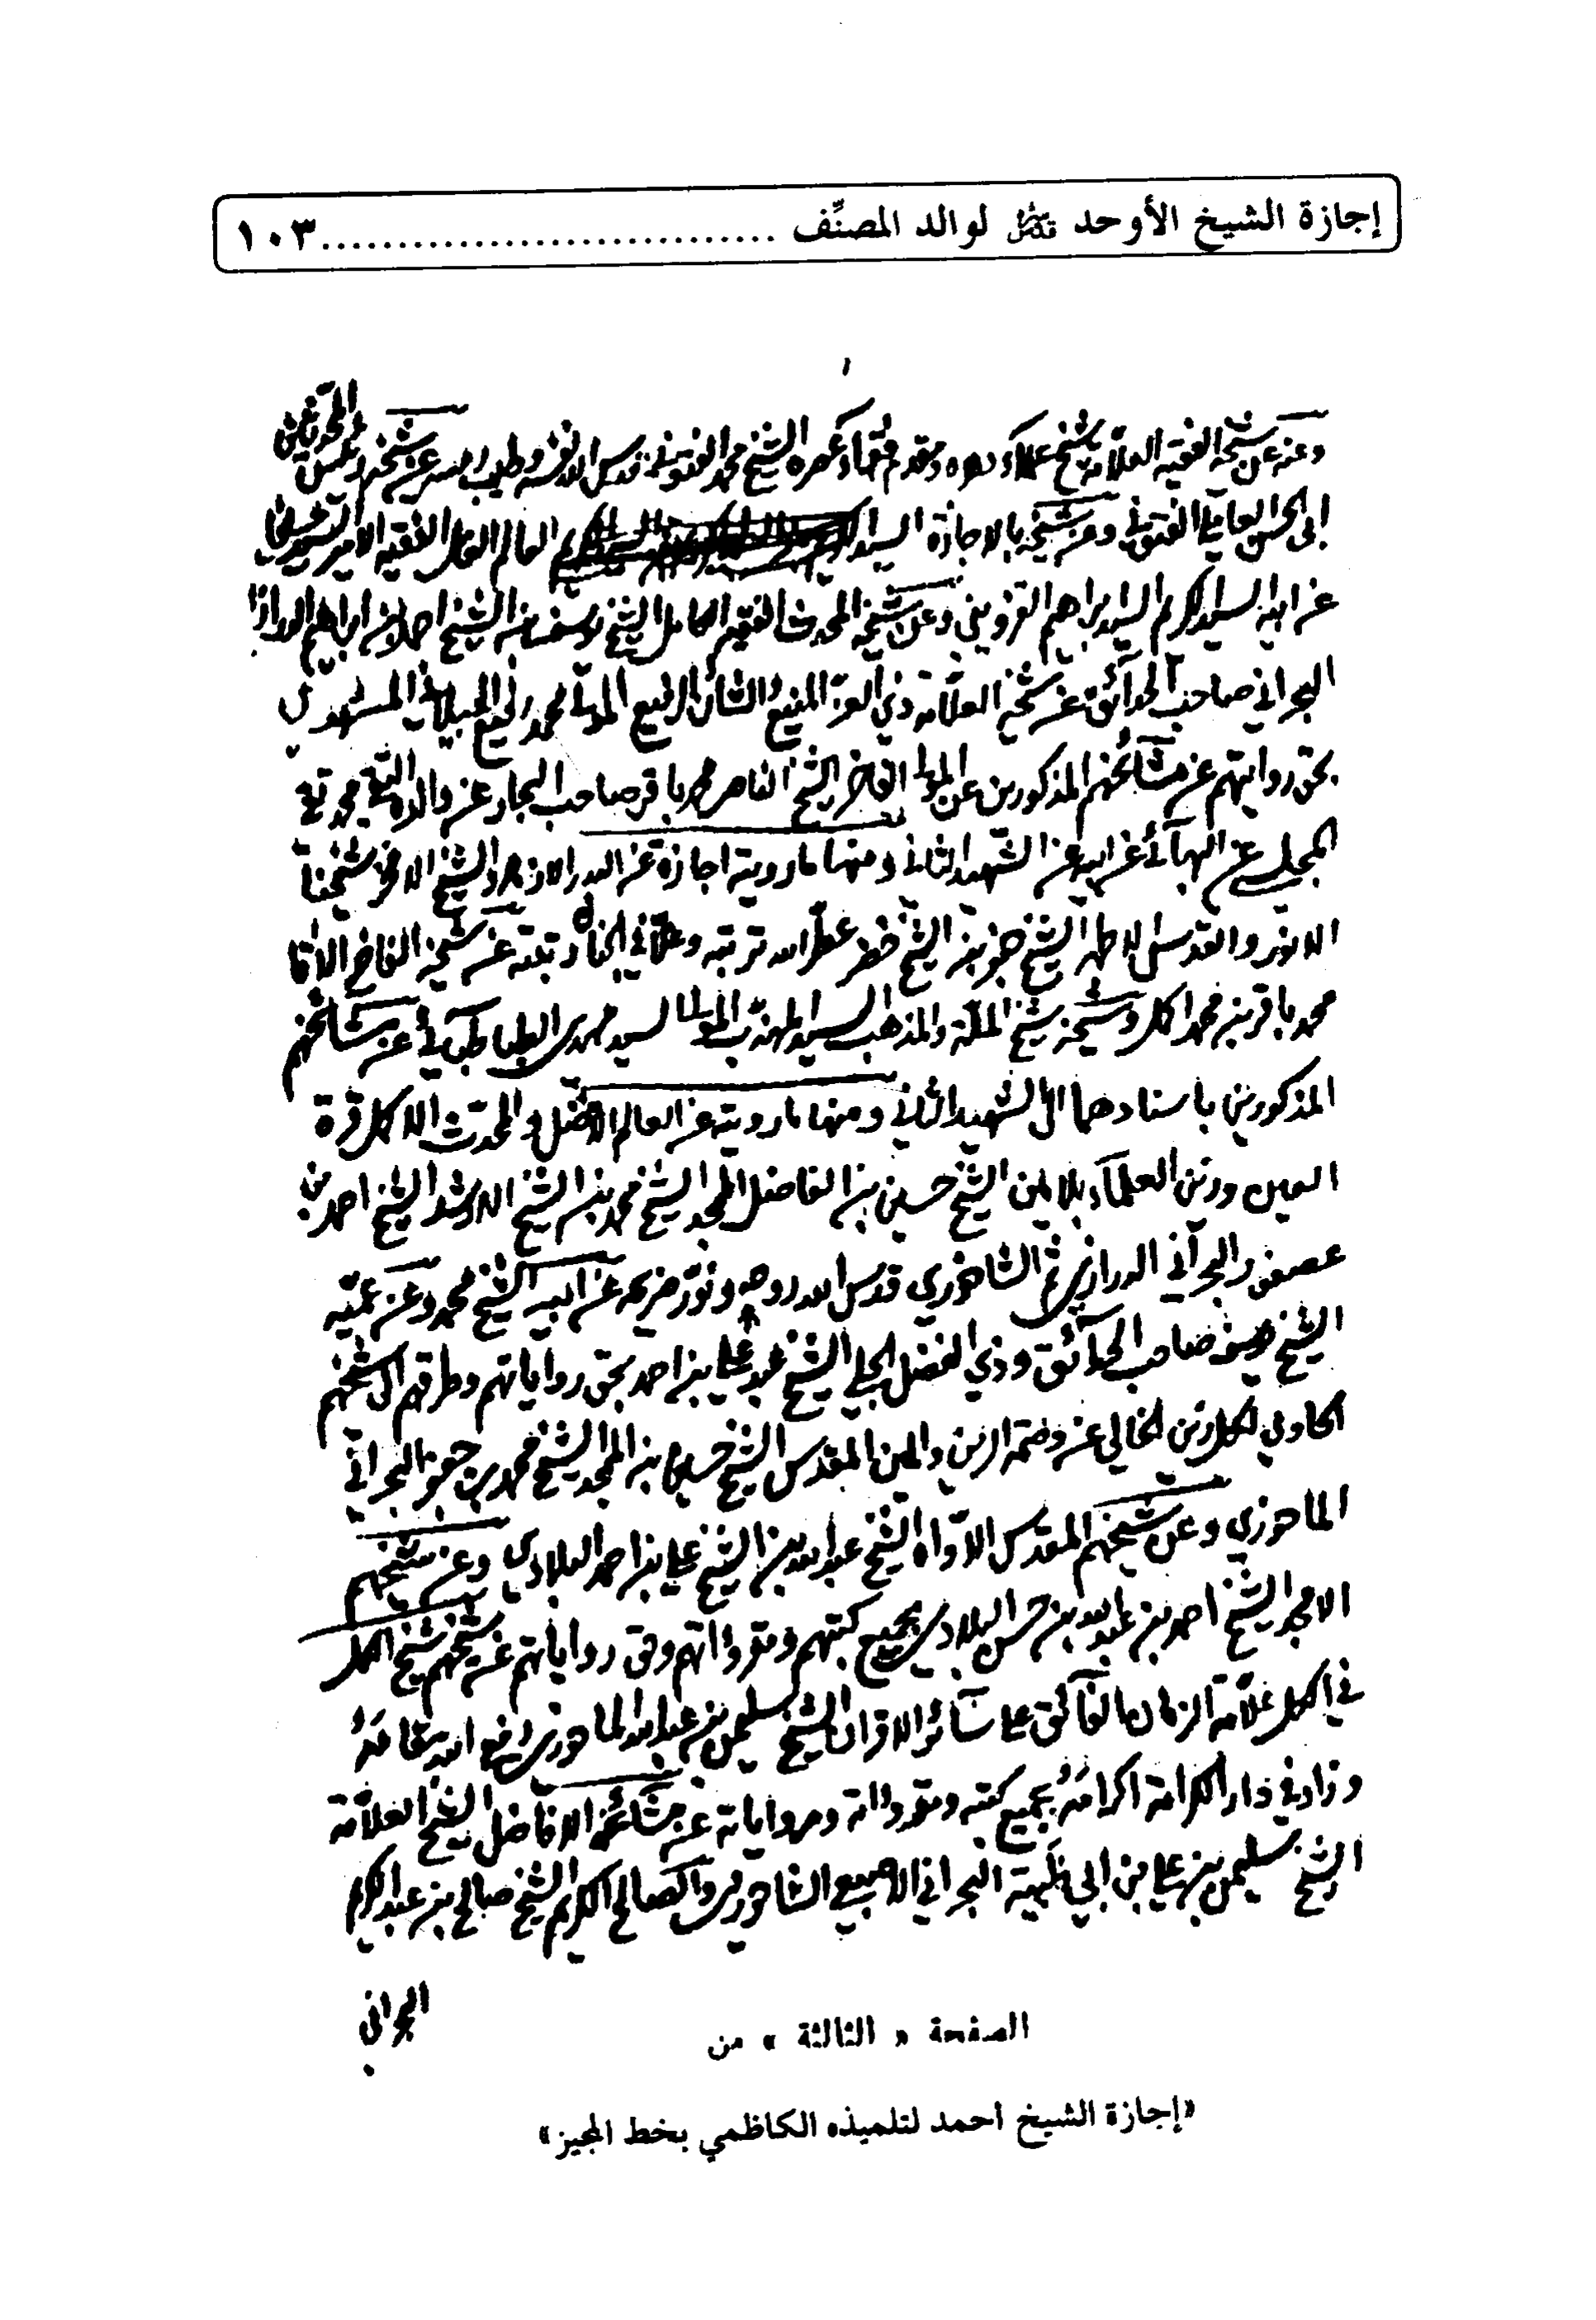 إجازة الشيخ الأوحد قدس سره لوالد المصنِّف ..............................١٠٣
وعنه عن شيخه الفقيه العلامة شيخ علماء دهره ومقدم فقهاء عصره الشيخ محمد الفتوني قدس الله نفسه وطيب رمسه عن شيخه رئيس المحدثين
ابي الحسن العاملي الفتوني وعن شيخه بالاجازة السيد العالم الفقيه الامير السيد حسين
عن ابيه السيد اكرم السيد ابراهيم القزويني وعن شيخه المحدث الفقيه الكامل الشيخ يوسف ابن الشيخ احمد ابن ابراهيم الدرازي
البحراني صاحب الحدآئق عن شيخه العلّامة ذي العز المنيع والشان الرفيع المولى محمد رفيع الجيلاني المشهدي
بحق روايتهم عن مشآئخهم المذكورين عن المولى الفاخر الشيخ الناصر محمد باقر صاحب البحار عن والده التقي محمد تقي
المجلسي عن البهآئي عن ابيه عن الشهيد الثاني ومنها مارويته اجازة عن البدر الازهر والشيخ الافخر شيخنا
الانور والقدس الاطهر الشيخ جعفر بن الشيخ خضر عطّر الله تربته وعلّا في الجنان رتبته عن شيخه الفاخر الاقا
محمد باقر بن محمد اكمل وشيخه شيخ الملّة والمذهب السيد المهذّب المولى السيد مهدي الطباطبآئي عن مشآئخهم
المذكورين باسنادهما الى الشهيد الثاني ومنها مارويته عن العالم الافضل والمحدث الاكمل قرة
العين وزين العلمآء بلا مين الشيخ حسين بن الفاضل الامجد الشيخ محمد بن الشيخ الارشد الشيخ احمد بن
عصفور البحرآني الدرازي ثم الشاخوري قدس الله روحه ونوّر ضريحه عن ابيه الشيخ محمد وعن عمّيه
الشيخ يوسف صاحب الحدآئق وذي الفضل الجلي الشيخ عبد علي بن احمد بحق رواياتهم وطرقهم الى شيخهم
الحاوي لكل زين الخالي عن وصمة الرين والمين المقدس الشيخ حسين بن الامجد الشيخ محمد بن جعفر البحراني
الماحوزي وعن شيخهم المقدس الاوّاه الشيخ عبد الله بن الشيخ علي بن احمد البلادي وعن شيخهم
الامجد الشيخ احمد بن عبد الله بن حسن البلادي بجميع كتبهم ومقرواتهم وحق رواياتهم عن شيخهم شيخ الكل
في الكل علّامة الزمان الفآئق على سآئر الاقران الشيخ سليمن بن عبد الله الماحوزي رفع الله مقامَهُ
وزاد في دار الكرامة اكرامَهُ بجميع كتبه ومقرواته ومروياته عن مشآئخه الافاضل الشيخ العلّامة
الشيخ سليمن بن علي بن ابي ظبية البحراني الاصبعي الشاخوري والصالح الكريم الشيخ صالح بن عبد الكريم
البحراني
الصفحة « الثالثة » من
«إجازة الشيخ احمد لتلميذه الكاظمي بخط المجيز»